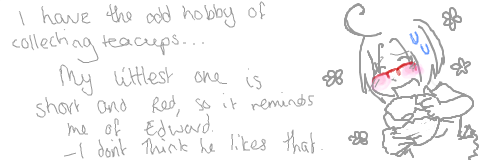 I have the odd hobby of
collecting teacups...
My littlest one is
short and Red, so it reminds
me of Edward.
- I don't think he likes that.